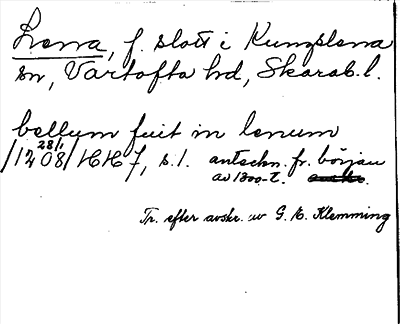 Lena, f. slott i Kungslena
sn, Vartofta hd, Skarab.l.
bellum fuit in lenum
28/1
/1208/ HH 7, s.1. anteckn. fr. början
av 1300-t.
Tr. efter avskr. av G. E. Klemming